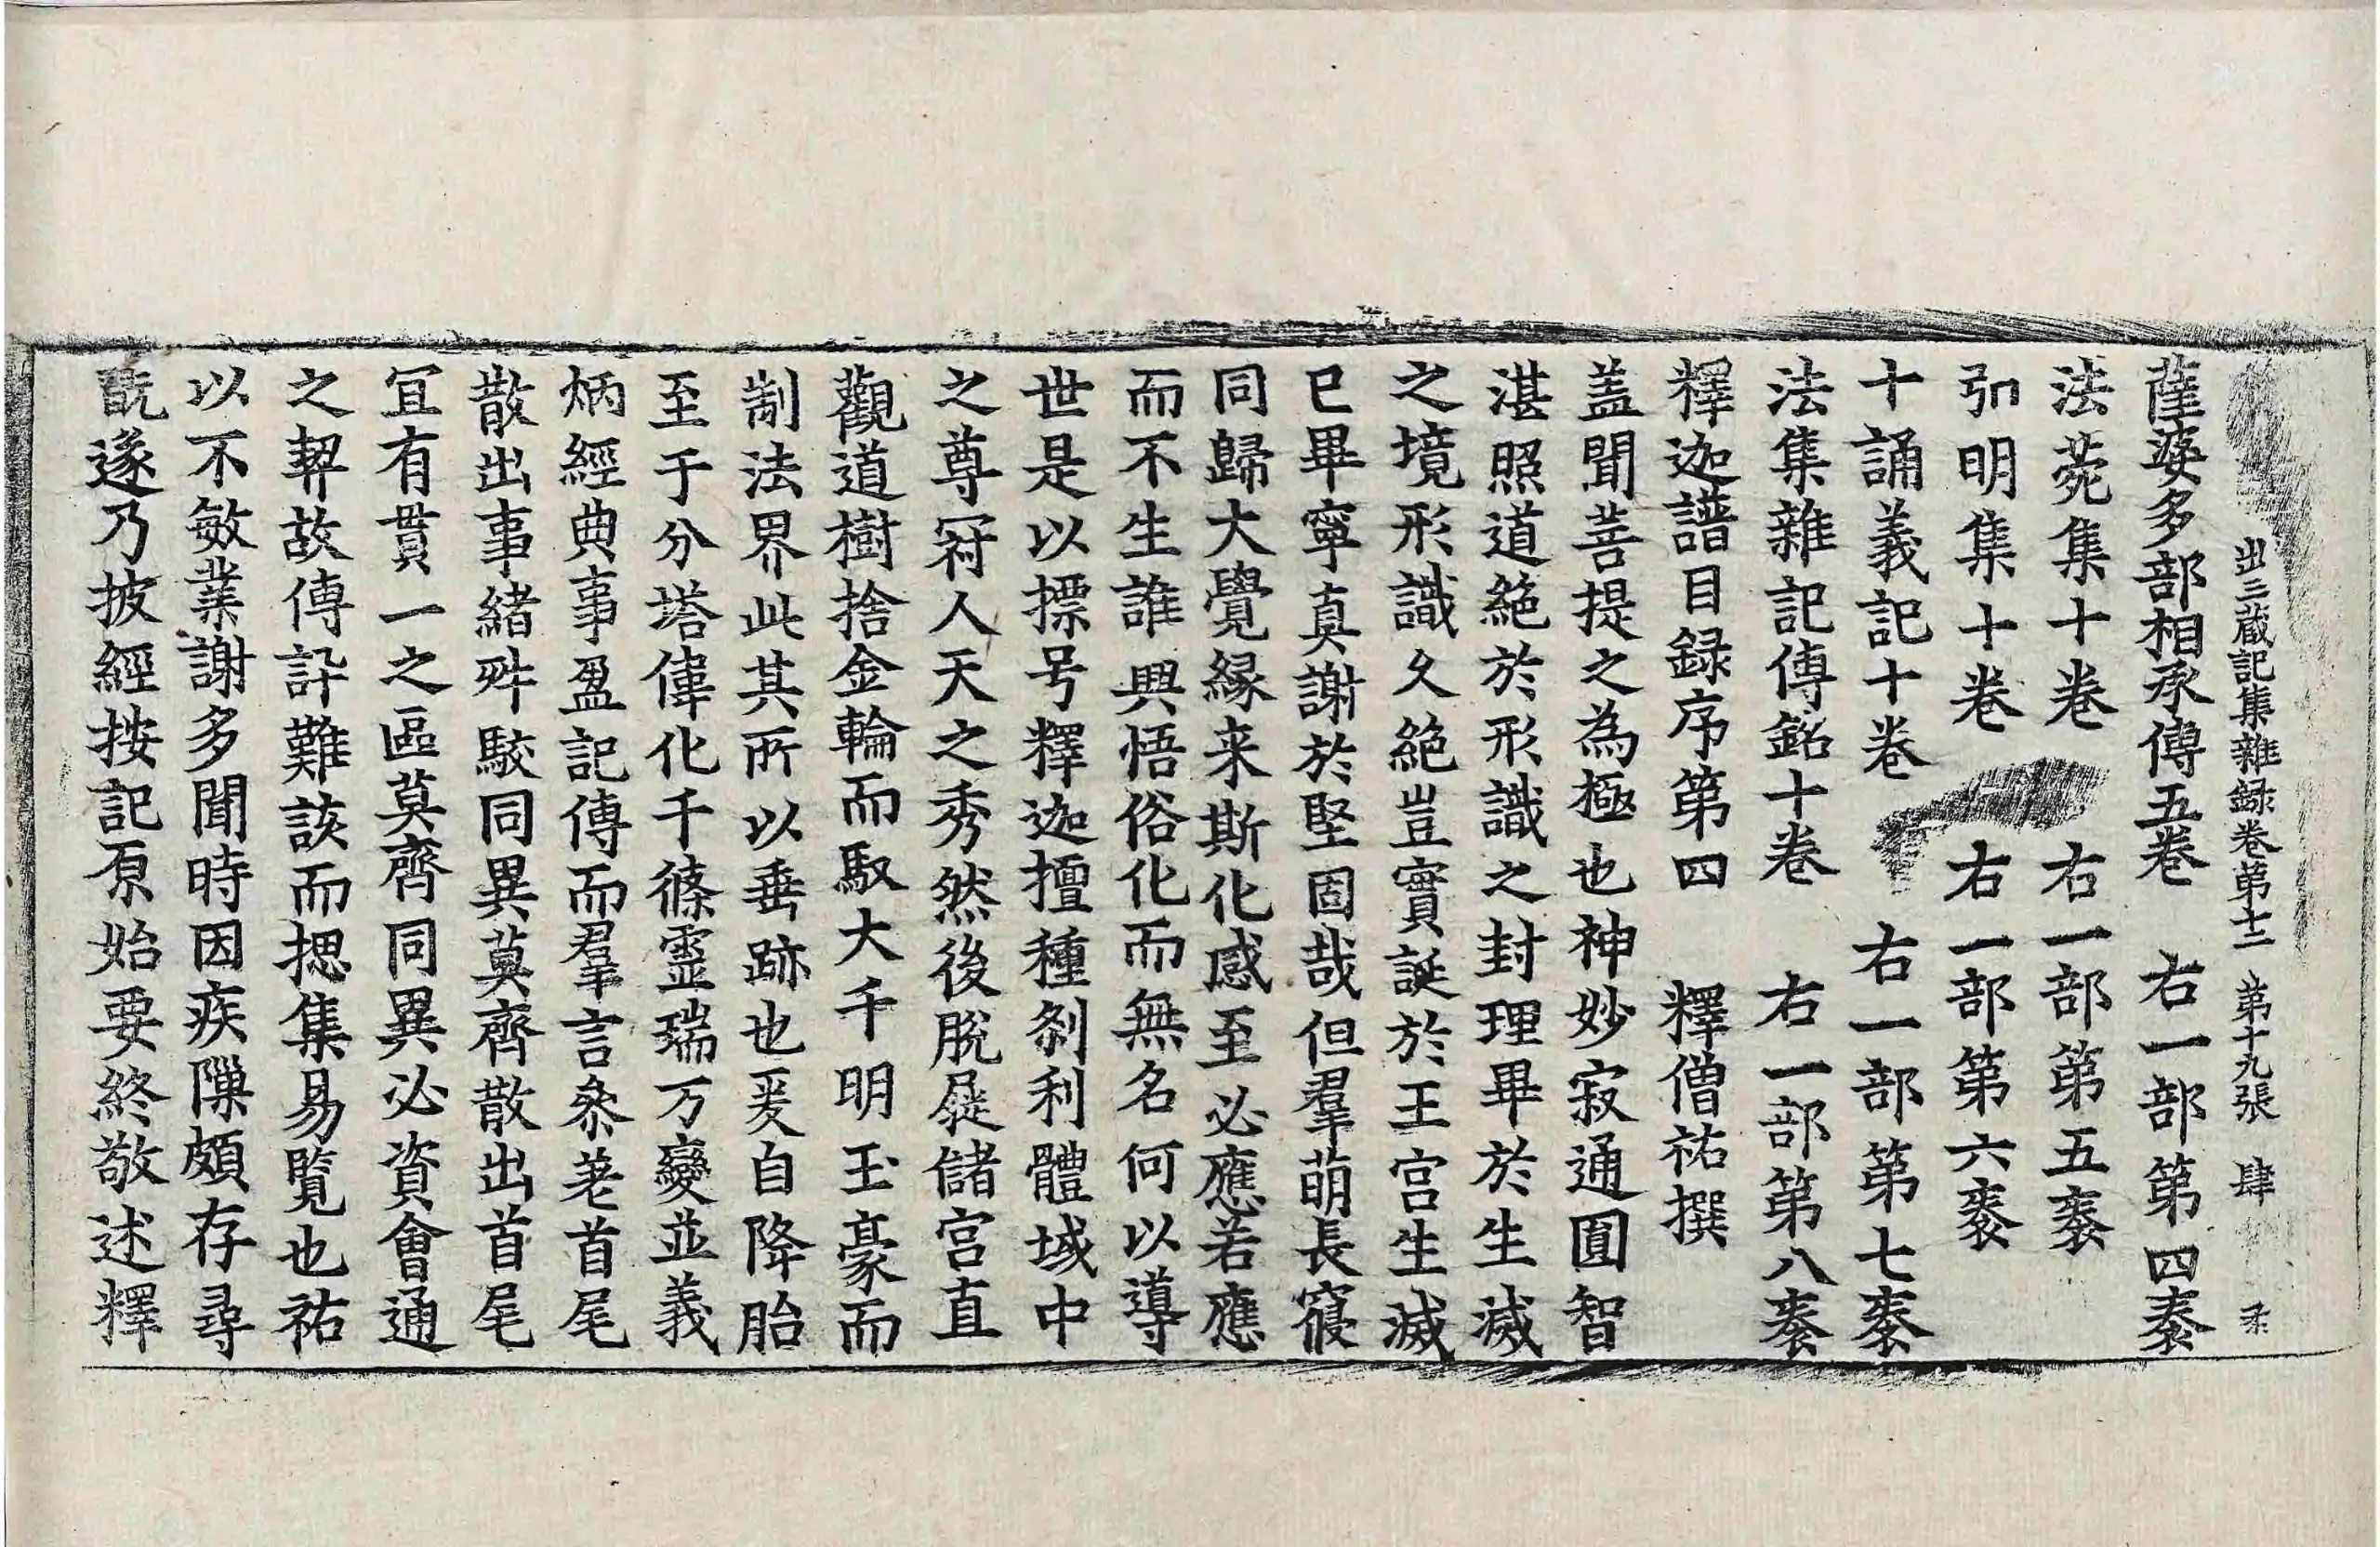 出三藏記集雜録卷第十二 第十九張 肆
薩婆多部相承傳五卷 右一部第四袠
法菀集十卷 右一部第五袠
弘明集十卷 右一部第六袠
十誦義記十卷 右一部第七袠
法集雜記傳銘十卷 右一部第八袠
釋迦譜目録序第四 釋僧祐撰
盖聞菩提之為極也神妙寂通圓智
湛照道絶於形識之封理畢於生滅
之境形識久絶豈實誕於王宫生滅
已畢寧真謝於堅固哉但羣萌長寢
同歸大覺縁来斯化感至必應若應
而不生誰興悟俗化而無名何以導
世是以摽号釋迦擅種刹利體域中
之尊冠人天之秀然後脫屣儲宫直
觀道樹捨金輪而馭大千明玉豪而
制法界此其所以垂跡也爰自降胎
至于分塔偉化千條靈瑞万變並義
炳經典事盈記傳而羣言叅差首尾
散出事緒舛駮同異莫齊散出首尾
冝有貫一之區莫齊同異必資會通
之契故傳訐難該而揔集易覽也祐
以不敏業謝多聞時因疾隟頗存尋
翫遂乃披經按記原始要終敬述釋